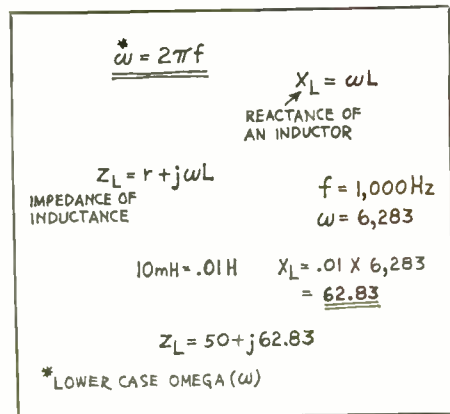 *
ω = 2πf
X_L = ωL
REACTANCE OF
AN INDUCTOR
Z_L = r + jωL
IMPEDANCE OF
INDUCTANCE
f = 1,000 Hz
ω = 6,283
10mH = .01H
X_L = .01 X 6,283
= 62.83
Z_L = 50 + j62.83
*LOWER CASE OMEGA (ω)